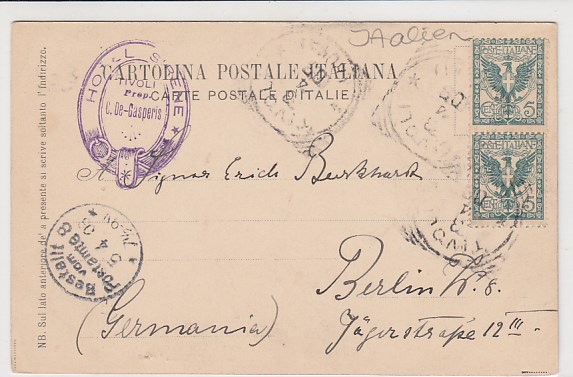 JAalien
CARTOLINA POSTALE ITALIANA
CARTE POSTALE D'ITALIE
HOTEL SIRENE
TIVOLI
Prop.
C. De-Gasperis
POSTE ITALIANE
5
POSTE ITALIANE
5
TIVOLI
TIVOLI
A Signor Erich Burkhardt
Berlin W. 8.
Jägerstraße 12 III.
(Germania)
Bestellt
vom
Postamte 8
5 4 03
NB. Sul lato anteriore de la presente si scrive soltanto l'indirizzo.